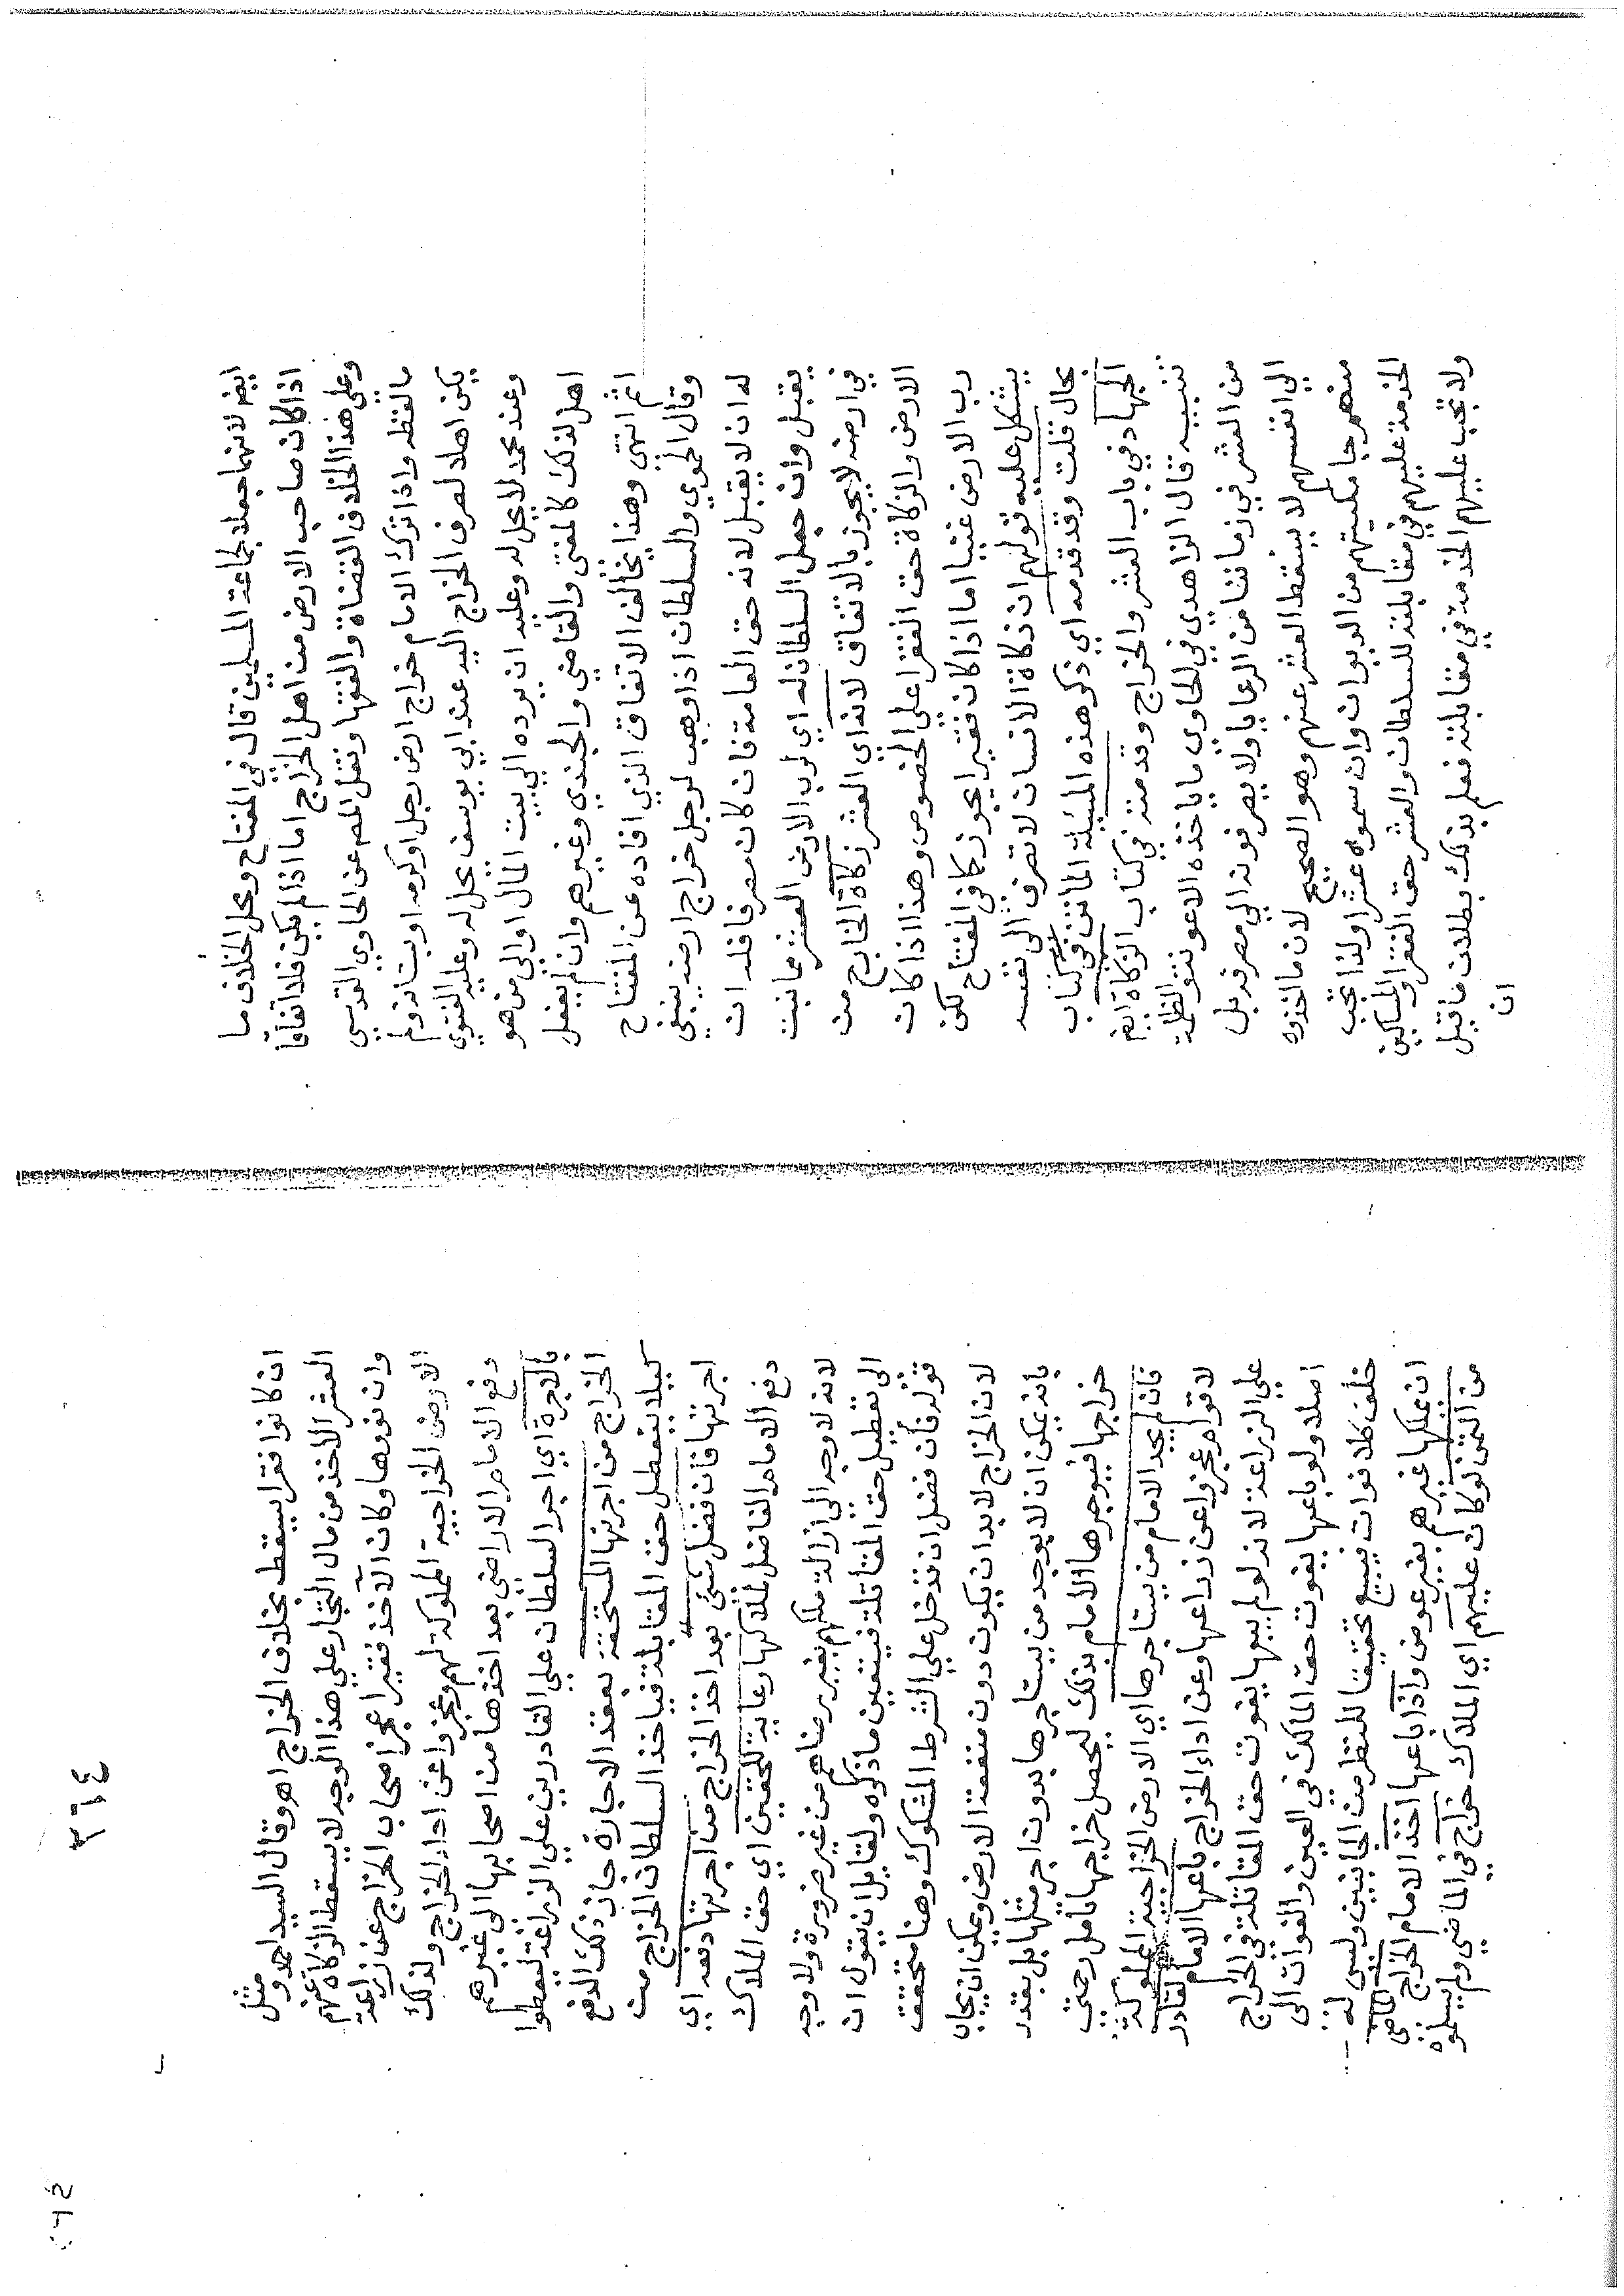 ايضا لانهما جعلا لجماعة المسلمين قال في المفتاح ومحل الخلاف ما
اذا كان صاحب الارض من اهل الخراج اما اذا لم يكن فلا اتفاقا
وعلى هذا الخلاف القضاة والفقها ونقل المص عن الحاوي القدسي
ما لفظه واذا ترك الامام خراج ارض رجل او كرمه او بستانه ولم
يكن اهلا لصرف الخراج اليه عند ابي يوسف يحل له وعليه الفتوى
وعند محمد لا يحل له وعليه ان يرده الي بيت المال او الي من هو
اهل لذلك كالمفتي والقاضي والجندي وغيرهم وان لم يفعل
اثم انتهى وهذا يخالف الاتفاق الذي افاده عن المفتاح
وقال الحموي والسلطان اذا وهب لرجل خراج ارضه ينبغي
له ان لا يقبل لانه حق العامة فان كان مصرفا فله ان
يقبل وان جعل السلطان له اي لرب الارض العشر مما نبت
في ارضه لا يجوز بالاتفاق لانه اي العشر زكاة الخارج من
الارض والزكاة حق الفقرا على الخصوص وهذا اذا كان
رب الارض غنيا اما اذا كان فقيرا يجوز كما في المفتاح لكن
يشكل عليه قولهم ان زكاة الانسان لا تصرف الى نفسه
بحال قلت وقد قدمه اي ذكر هذه المسئلة الماتن في كتاب
الجهاد في باب العشر والخراج وقدمته في كتاب الزكاة ايضا
تنبيه قال الزاهدي في الحاوى ما ياخذه الاعونة الظلمة
من العشر في زماننا من الرعايا ولا يصرفونه الي مصرفه بل
الي انفسهم لا يسقط العشر عنهم وهو الصحيح لان ما اخذوه
منهم رجا مكيتهم من الربوات وان سموه عشرا ولذا تجب
الخدمة عليهم في مقابلته للسلطان والعشر حق الفقرا والمساكين
ولا تجب عليهم الخدمة في مقابلته فعلم بذلك بطلان ما قيل
ان
٣٦٤
ان كانوا فقرا يسقط بخلاف الخراج اهـ وقال السيد احمد ومثل
العشر الاخذ من مال التجار علي هذا الوجه لا يسقط الزكاة عنهم
وان نووها وكان الآخذ فقيرا عجز اصحاب الخراج عن زراعة
الارض الخراجية المملوكة لهم وعجزوا عن اداء الخراج ولذلك
دفع الامام الاراضي بعد اخذها من اصحابها الى غيرهم
بالاجرة اي اجر السلطان على القادرين علي الزراعة ليعطوا
الخراج من اجرتها المستحقة بعقد الاجارة جاز ذلك الدفع
كيلا يتعطل حق المقاتلة فياخذ السلطان الخراج من
اجرتها فان فضل شئ بعد اخذ الخراج من اجرتها دفعه اي
دفع الامام الفاضل لملاكها رعاية للحقين اي حق الملاك
لانه لا وجه الى ازالة ملكهم بغير رضاهم من غير ضرورة ولا وجه
الى تعطيل حق المقاتلة فيتعين ما ذكره ولقايل ان يقول ان
قوله فان فضل ان تدخل علي الشرط المشكوك وهنا متحقق
لان الخراج لا بد ان يكون دون منفعة الارض ويمكن ان يجاب
بانه يمكن ان لا يوجد من يستاجرها بدون اجر مثلها بل بقدر
خراجها فيوجرها الامام بذلك ليحصل خراجها تامل رحمتي
فان لم يجد الامام من يستاجرها اي الارض الخراجية المملوكة
لاقوام عجزوا عن زراعها وعن اداء الخراج باعها الامام لقادر
علي الزراعة لانه لو لم يبعها يفوت حق المقاتلة في الخراج
اصلا ولو باعها يفوت حق المالك في العين والفوات الى
خلف كلا فوات فيبيع تحقيقا للنظر من الجانبين وليس له
ان يملكها غيرهم بغير عوض واذا باعها اخذ الامام الخراج الماضي
من الثمن لو كان عليهم اي الملاك خراج في الماضي ولم يسلموه